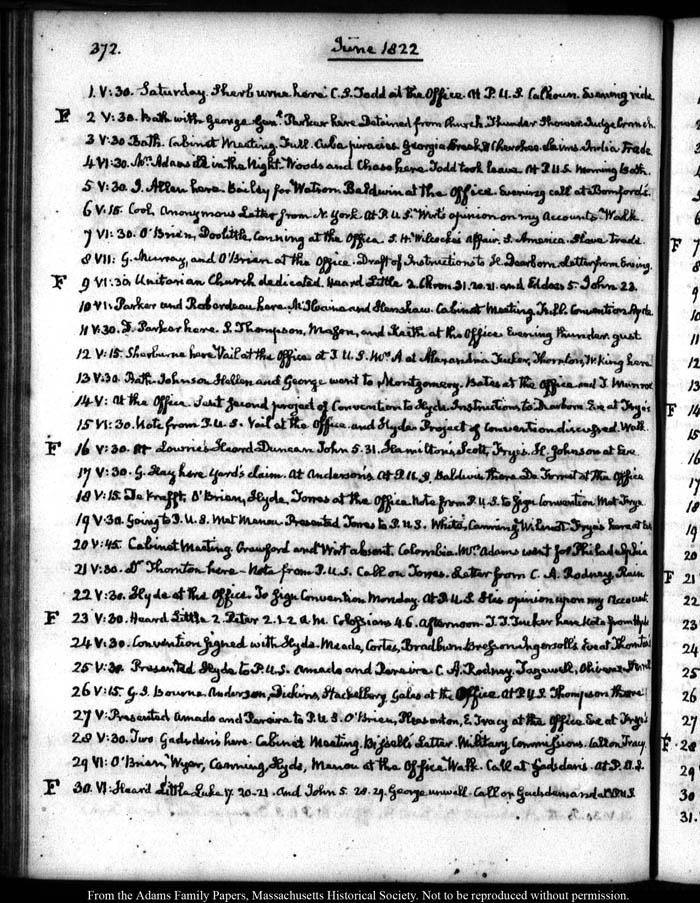 372. June 1822
1. V:30. Saturday. Sherburne here C. S. Todd at the Office. At P.U.S. Calhoun. Evening ride
F 2 V:30. Bath with George. Genl. Parker here Detained from Church. Thunder Shower. Judge
3 V:30 Bath. Cabinet Meeting. Full. Cuba piracies. Georgia Creek & Cherokee claims India Trade
4 VI:30. Mrs. Adams ill in the Night. Woods and Chase here. Todd took leave. At P.U.S. Morning Bath.
5 V:30. J. Allen here. Bailey for Watson Baldwin at the Office. Evening call at Bomford's.
6 V:15. Cool, Anonymous Letter from N. York. At P.U.S. Wirt's opinion on my Accounts. Walk
7 VI:30. O'Brien, Doolittle, Canning at the Office. S. H. Wilcocks's Affair. S. America. Slave Trade.
8 VII: G. Murray, and O'Brien at the Office. Draft of Instructions to H. Dearborn. Letter from Erving.
F 9 VI:30 Unitarian Church dedicated. Heard Little 2. Chron. 31. 20.21. and Eddes 5. John 23.
10 VI: Parker and Robardeau here. McIlvaine and Henshaw. Cabinet Meeting. Full. Convention Hyde.
11 V:30. D. Parker here. P. Thompson, Mason, and Keith at the Office Evening thunder gust
12 V:15. Sherburne here Vail at the Office at P.U.S. Mrs. A at Alexandria Tucker, Thornton, W. King here
13 V:30. Bath. Johnson Hellen and George went to Montgomery. Bates at the Office and J. Munroe
14 V: At the Office. Sent second project of Convention to Hyde. Instructions to Dearborn. Eve at Frye's
15 VI:30. Note from P.U.S. Vail at the Office and Hyde. Project of Convention discussed. Walk.
F 16 V:30. At Lowrie's Heard Duncan John 5.31. Hamilton's, Scott, Fryes. H. Johnson at Eve
17 V:30. G. Hay here Yard's claim. At Anderson's At P.U.S. Baldwin there De Forrest at the Office
18 V:15. De Krafft. O'Brien, Hyde, Torres at the Office Note from P.U.S. to sign Convention Met Frye
19 V:30. Going to P.U.S. Met Manou. Presented Torres to P.U.S. White, Canning, Frye's here at Eve
20 V:45. Cabinet Meeting. Crawford and Wirt absent. Colombia. Mrs. Adams went for Philadelphia
21 V:30. Dr. Thornton here - Note from P.U.S. Call on Torres. Letter from C. A. Rodney. Rain
22 V:30. Hyde at the Office. To sign Convention Monday. At P.U.S. His opinion upon my Account.
F 23 V:30. Heard Little 2. Peter 2.1.2 A.M. Colossians 4.6. Afternoon. T. T. Tucker here Note from Hyde
24 V:30. Convention signed with Hyde. Meade, Cortes, Bradburn Bresson Ingersolls. Eve at Thornton's
25 V:30. Presented Hyde to P.U.S. Amado and Pereira C. A. Rodney. Tazewell,
26 V:15. G. S. Bourne. Anderson, Dickins, Hackelbery Gales at the Office. At P.U.S. Thompson there
27 V: Presented Amado and Pereira to P.U.S. O'Brien, Pleasonton, E. Tracy at the Office Eve at Frye's
28 V:30. Two Gadsdens here. Cabinet Meeting. Bissell's Letter. Military Commissions. Call on Tracy.
29 VI: O'Brien, Wyer, Canning, Hyde, Manou at the Office. Walk. Call at Gadsden's. At P.U.S.
F 30. VI: Heard Little Luke 17. 20-21. and John 5. 28.29. George unwell. Call on Gadsdens and at P.U.S
From the Adams Family Papers, Massachusetts Historical Society. Not to be reproduced without permission.